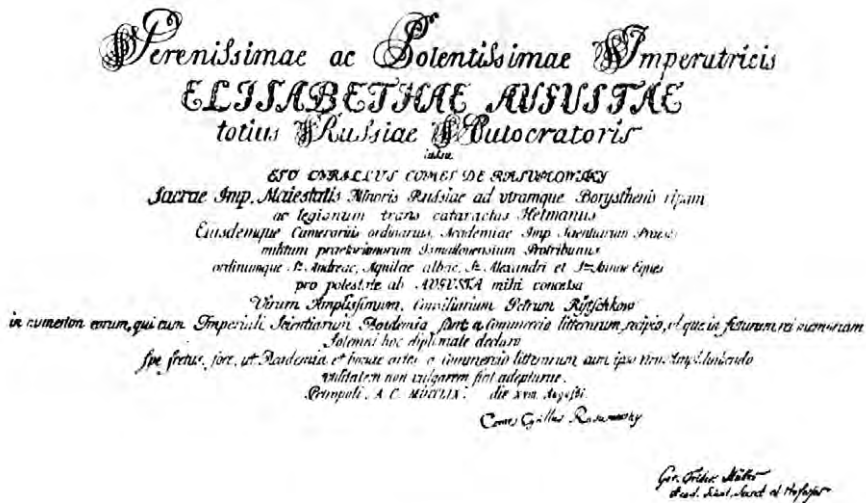 Serenissimae ac Potentissimae Imperatricis
ELISABETHAE AUGUSTAE
totius Russiae Autocratoris
iussu
EGO CYRILLUS COMES DE RASUMOWSKY
Sacrae Imp. Maiestatis Minoris Russiae ad vtramque Borysthenis ripam
ac legionum trans cataractas Hetmanus
Eiusdemque Camerarius ordinarius, Academiae Imp. Scientiarum Praeses
militum praetorianorum Ismailoviensium Protribunus
ordinumque St. Andreae, Aquilae albae, St. Alexandri et Stae Annae Eques
pro potestate ab AUGUSTA mihi concessa
Virum Amplissimum, Consiliarium Petrum Rytschkow
in numerum eorum, qui cum Imperiali Scientiarum Academia sunt in Commercio litterarum, recipio, et in futuram rei memoriam
solemni hoc diplomate declaro
Spe fretus, fore, ut Academia et bonae artes e Commercio litterarum cum ipso Viro Ampl.
vtilitatem non vulgarem sint adepturae.
Petropoli, A. C. MDCCLIX. die XVIII. Augusti.
Comes Cyrillus Rasumowsky
Ger. Frider. Müller
Acad. Scient. Secret. et Professor